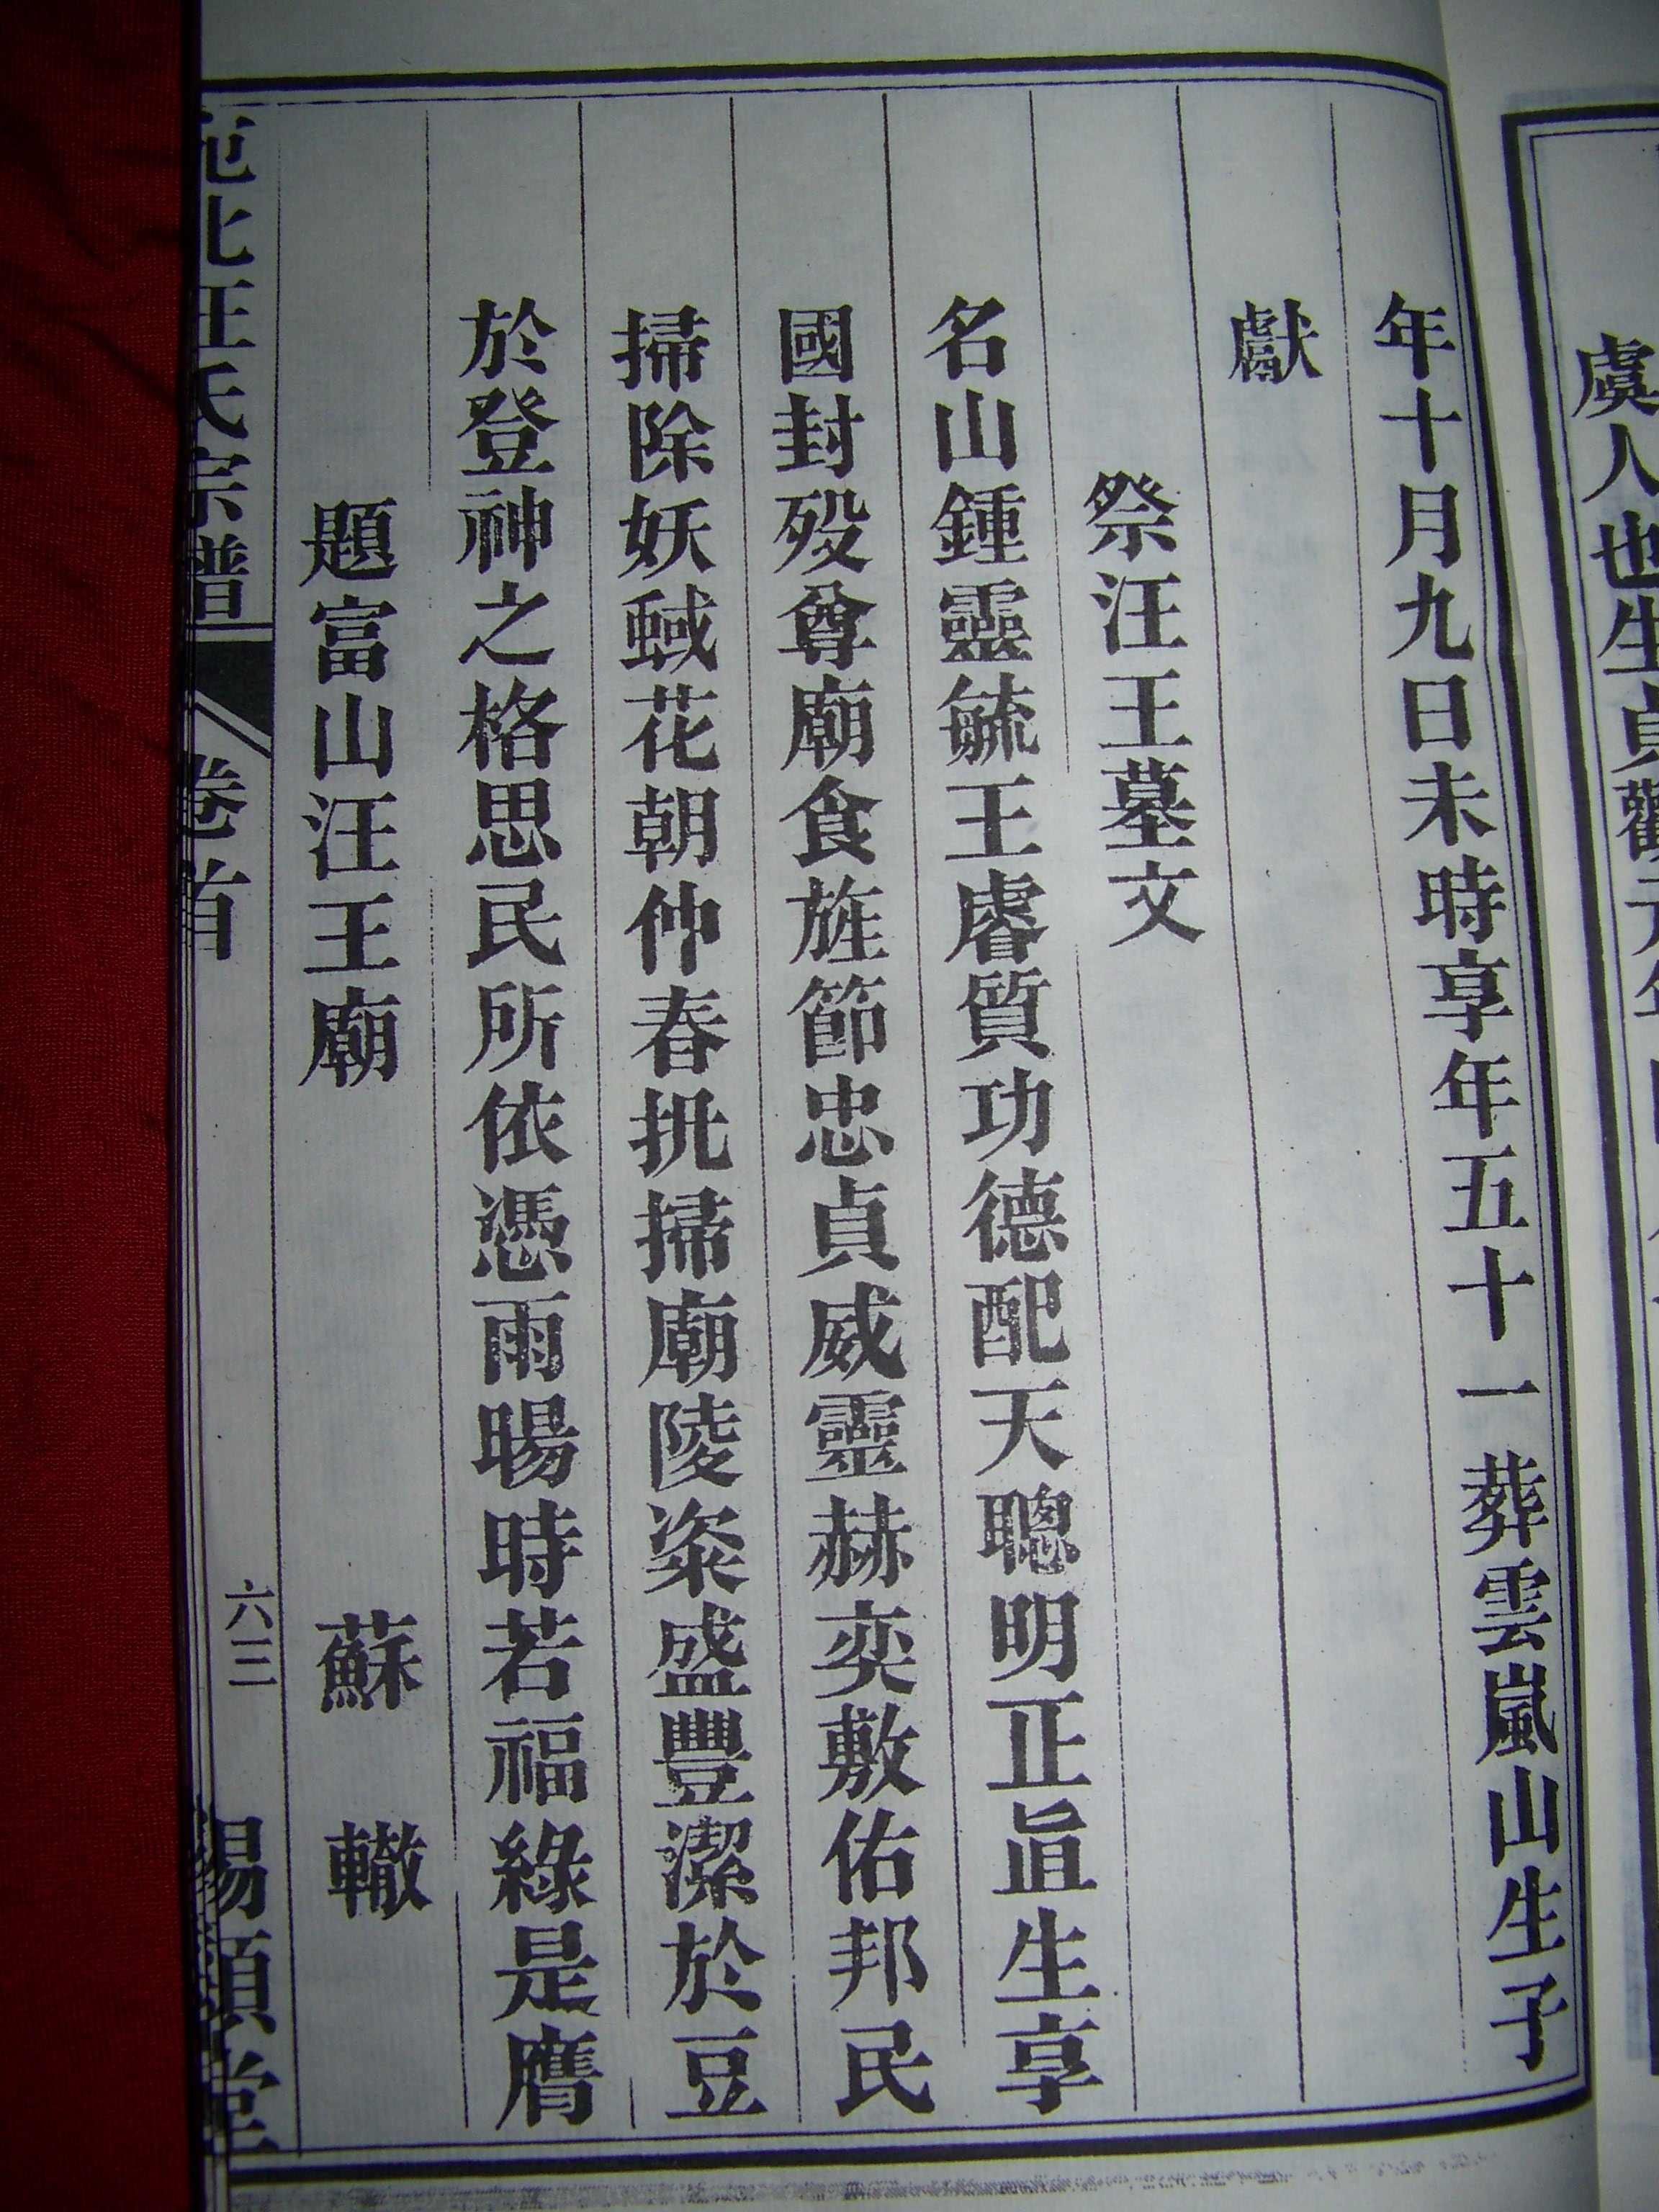 虞人也生貞觀元年
年十月九日未時享年五十一葬雲嵐山生子
獻
祭汪王墓文
名山鍾靈毓王睿質功德配天聰明正直生享
國封殁尊廟食旌節忠貞威靈赫奕敷佑邦民
掃除妖蜮花朝仲春挑掃廟陵粢盛豐潔於豆
於登神之格思民所依憑雨暘時若福綠是膺
題富山汪王廟 蘇轍
北汪氏宗譜 卷首 六三